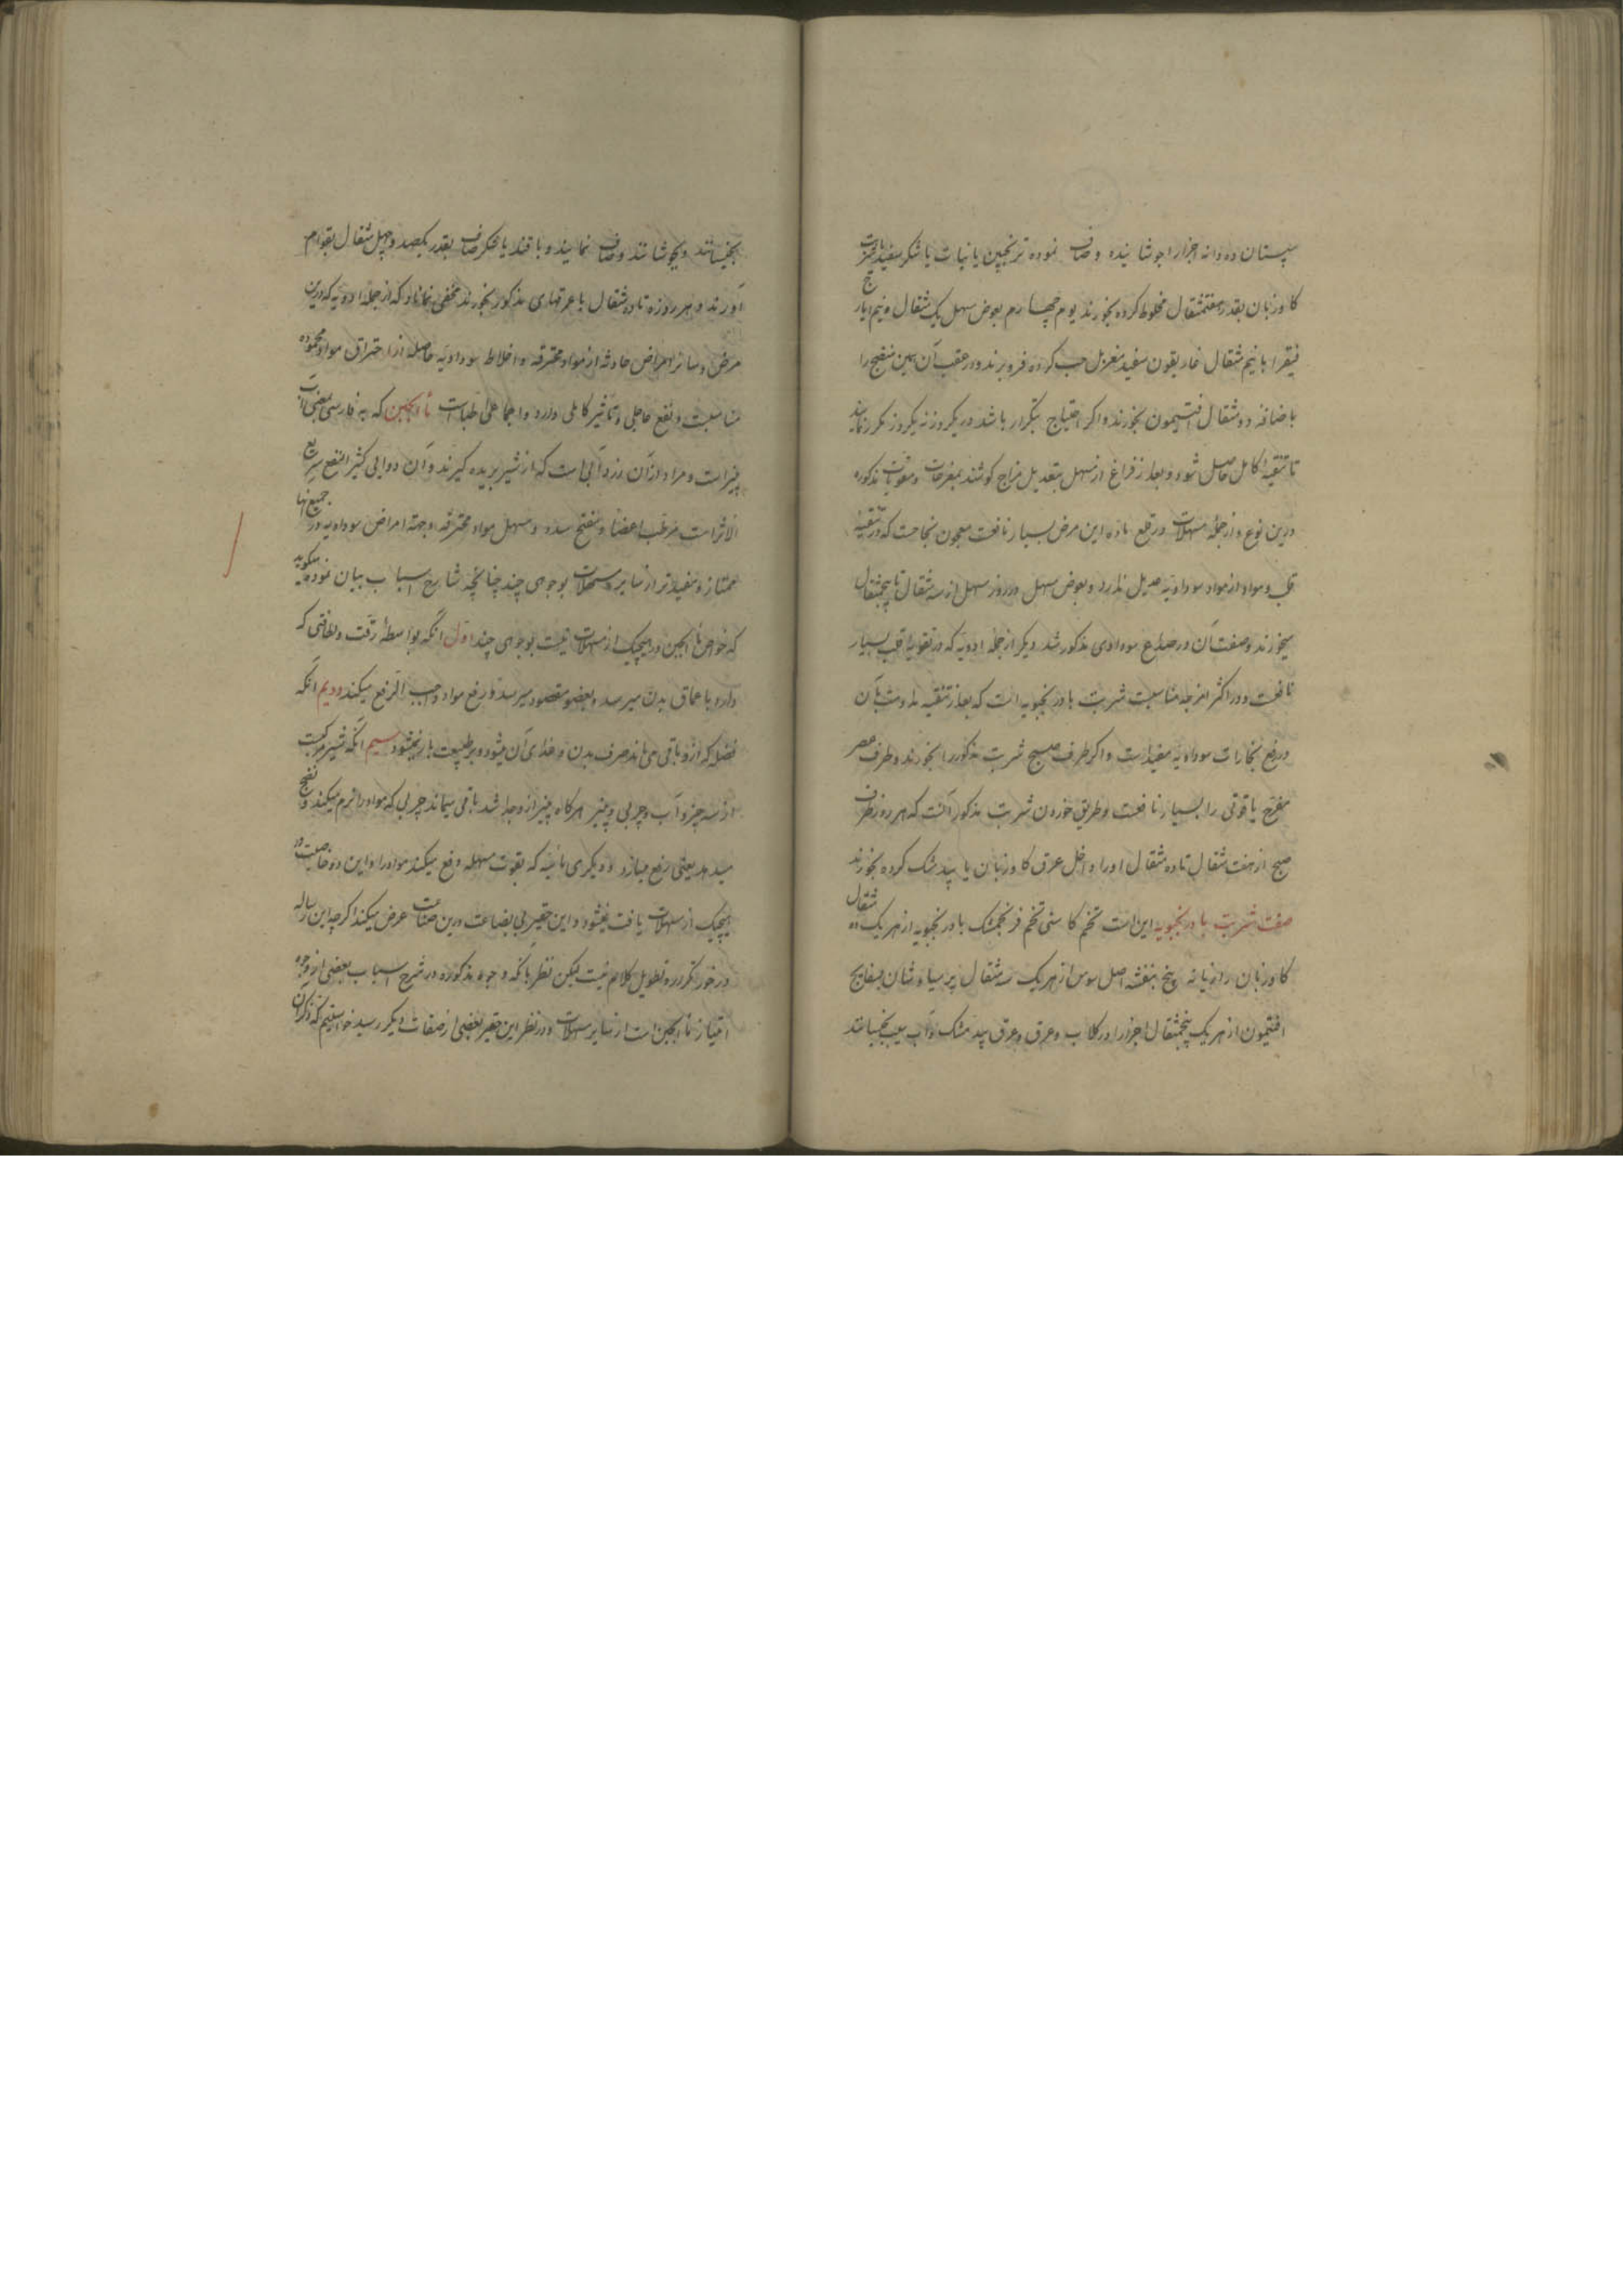 سپستان ده دانه اجزا را جوشانیده و صاف نموده ترنجبین یا نبات یا شکر سفید یا شربت
کاوزبان بقدر هفتمثقال مخلوط کرده بخورند یوم چهارم بعوض مسهل یک مثقال و نیم ایارج
فیقرا با نیم مثقال غاریقون سفید مغربل حب کرده فرو برند و در عقب آن همین منضج را
باضافه دو مثقال افتیمون بخورند و اکر احتیاج بتکرار باشد در یکروز نه یکروز مکرر نمایند
تا تنقیه کامل حاصل شود و بعد از فراغ از مسهل بتعدیل مزاج کوشند بمفرحات و مقویات مذکوره
درین نوع و از جمله مسهلات در قلع ماده این مرض بسیار نافعست معجون نجاحست که در تنقیه
قلب و مواد از مواد سوداویه عدیل ندارد و بعوض مسهل در روز مسهل از سه مثقال تا پنجمثقال
میخورند و صفت آن در صداع سوداوی مذکور شد دیکر از جمله ادویه که در تقویة قلب بسیار
نافعست و در اکثر امزجه مناسبست شربت بادرنجبویه است که بعد از تنقیه مداومت بآن
در رفع بخارات سوداویه مفیدست و اکر طرف صبح شربت مذکور را بخورند و طرف عصر
مفرح یاقوتی را بسیار نافعست و طریق خوردن شربت مذکور آنست که هر روز طرف
صبح از هفت مثقال تا ده مثقال اورا داخل عرق کاوزبان یا بیدمشک کرده بخورند
صفت شربت بادرنجبویه این است تخم کاسنی تخم فرنجمشک بادرنجبویه از هر یک ده مثقال
کاوزبان رازیانه پنج بنفشه اصل سوس از هر یک سه مثقال پر سیاوشان بسفایج
افتیمون از هر یک پنجمثقال اجزا را در کلاب و عرق و عرق بیدمشک و آب سیب بخیسانند
بخیسانند و بجوشانند و صاف نمایند و با قند یا شکر صاف بقدر یکصد و چهل مثقال بقوام
آورند و هر روزه تا ده مثقال با عرقهای مذکور بخورند مخفی نماناد که از جمله ادویه که درین
مرض و سائر امراض حادثه از مواد محترقه و اخلاط سوداویه حاصله از احتراق مواد محموده
مناسبت و نفع عاجلی و تاثیر کاملی دارد و اجماعلی طباست ماء الجبن که به فارسی بمعنی آب
پنیر است و مراد از آن زردآبی است که از شیر بریده کیرند و آن دوایی کثیر النفع سریع
الاثر است مرطب اعضا و مفتح سدد و مسهل مواد محترقه و جهة امراض سوداویه در جمیع آنها
ممتاز و مفیدتر از سایر مسهلات بوجوهی چند چنانچه شارح اسباب بیان نموده میکوید
که خواص ماء الجبن در هیچیک از مسهلات نیست بوجوهی چند اول آنکه بواسطهٔ رقت و لطافتی که
دارد باعماق بدن میرسد و بعضو مقصود میرسد و رفع مواد واجب الرفع میکند دویم آنکه
فضله که از و باقی می ماند صرف بدن و غذای آن میشود و بر طبیعت بار نمیشود سیم آنکه شیر مرکبست
از سه جزو آب و چربی و پنیر هرکاه پنیر از و جدا شد باقی میماند چربی که مواد را نرم میکند و نضج
میدهد یعنی رفع میسازد و دیکری مائیه که بقوت مسهله دفع میکند مواد را و این دو خاصیت در
هیچیک از مسهلات یافت نمیشود و این حقیر بی بضاعت درین صناعت عرض میکند اکرچه این رساله
در خور تکرر و تطویل کلام نیست لیکن نظر بآنکه وجوه مذکوره در شرح اسباب بعضی از وجوه
امتیاز ماء الجبن است از سایر مسهلات و در نظر این حقیر بعضی از صفات دیکر رسید خواستم که ذکر آن